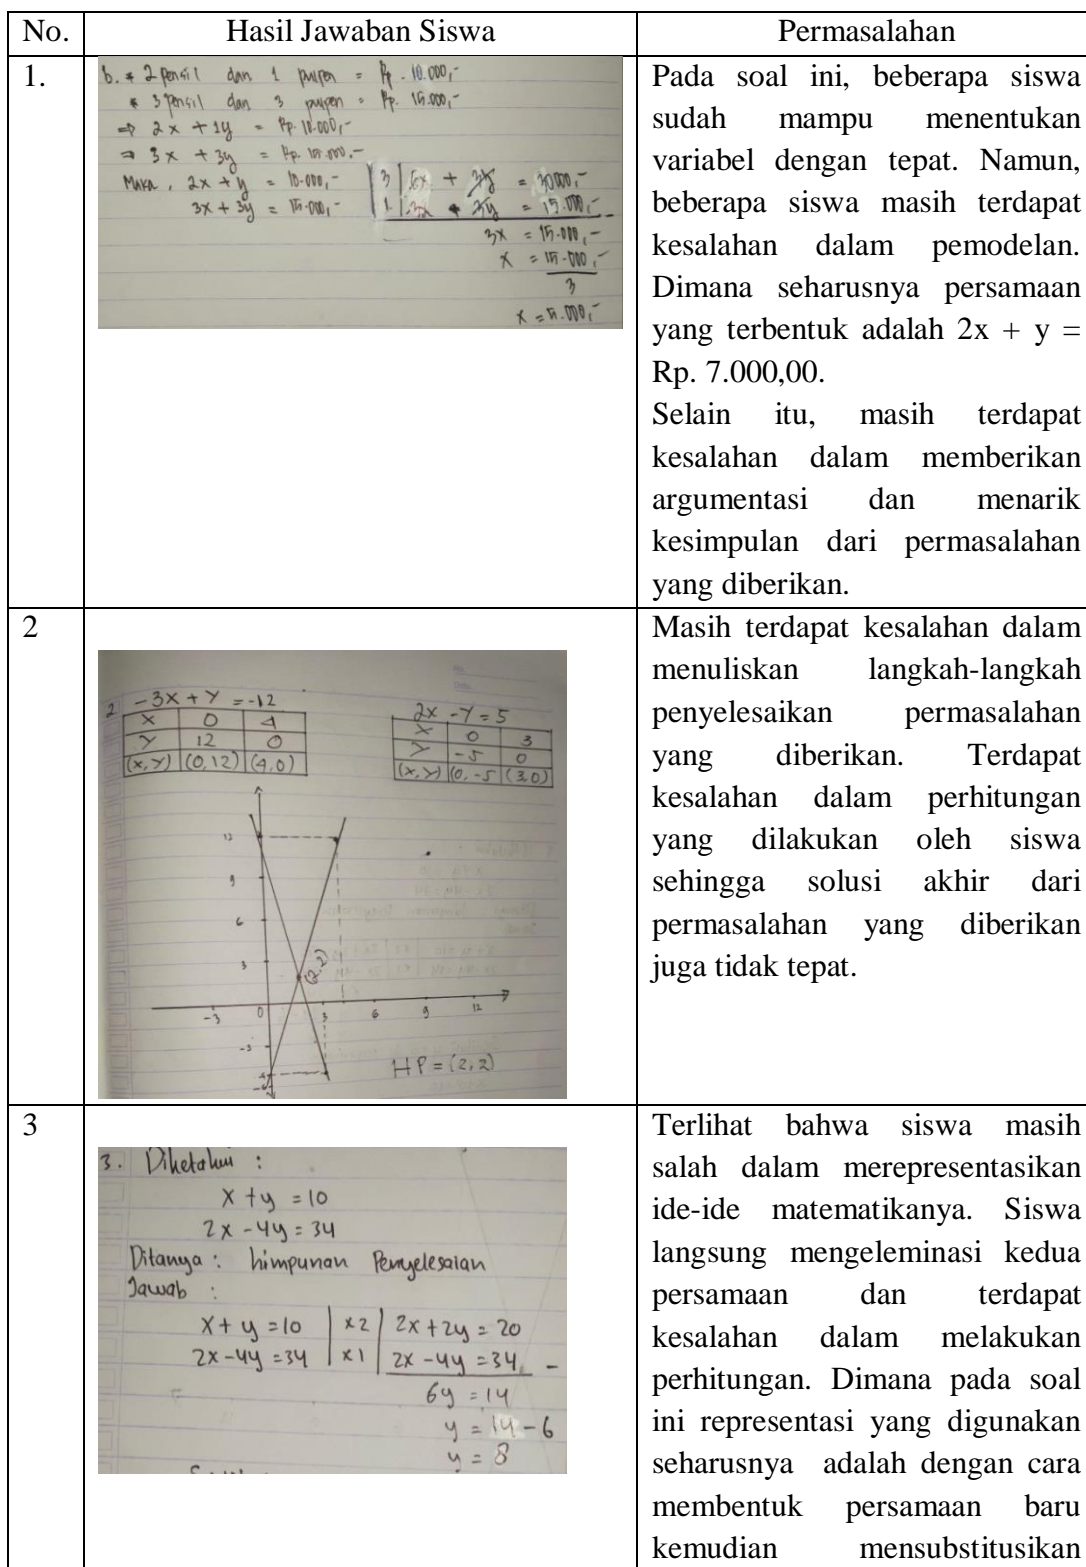 No. Hasil Jawaban Siswa Permasalahan
1.
b. * 2 pensil dan 1 pulpen = Rp. 10.000,-
* 3 pensil dan 3 pulpen = Rp. 15.000,-
⇒ 2x + 1y = Rp. 10.000,-
⇒ 3x + 3y = Rp. 15.000,-
Maka, 2x + y = 10.000,- | 3 | 6x + 3y = 30000,-
3x + 3y = 15.000,- | 1 | 3x + 3y = 15.000,-
3x = 15.000,-
x = 15.000,-
3
x = 5.000,-
Pada soal ini, beberapa siswa
sudah mampu menentukan
variabel dengan tepat. Namun,
beberapa siswa masih terdapat
kesalahan dalam pemodelan.
Dimana seharusnya persamaan
yang terbentuk adalah 2x + y =
Rp. 7.000,00.
Selain itu, masih terdapat
kesalahan dalam memberikan
argumentasi dan menarik
kesimpulan dari permasalahan
yang diberikan.
2
2 -3x + y = -12
x 0 4
y 12 0
(x,y) (0,12) (4,0)
2x - y = 5
x 0 3
y -5 0
(x,y) (0,-5 (3,0)
12
9
6
3
(2,2)
-3 0 3 6 9 12
-3
HP = (2,2)
Masih terdapat kesalahan dalam
menuliskan langkah-langkah
penyelesaikan permasalahan
yang diberikan. Terdapat
kesalahan dalam perhitungan
yang dilakukan oleh siswa
sehingga solusi akhir dari
permasalahan yang diberikan
juga tidak tepat.
3
3. Diketahui :
x + y = 10
2x - 4y = 34
Ditanya : himpunan Penyelesaian
Jawab :
x + y = 10 | x2 | 2x + 2y = 20
2x - 4y = 34 | x1 | 2x - 4y = 34 -
6y = 14
y = 14 - 6
y = 8
Terlihat bahwa siswa masih
salah dalam merepresentasikan
ide-ide matematikanya. Siswa
langsung mengeleminasi kedua
persamaan dan terdapat
kesalahan dalam melakukan
perhitungan. Dimana pada soal
ini representasi yang digunakan
seharusnya adalah dengan cara
membentuk persamaan baru
kemudian mensubstitusikan